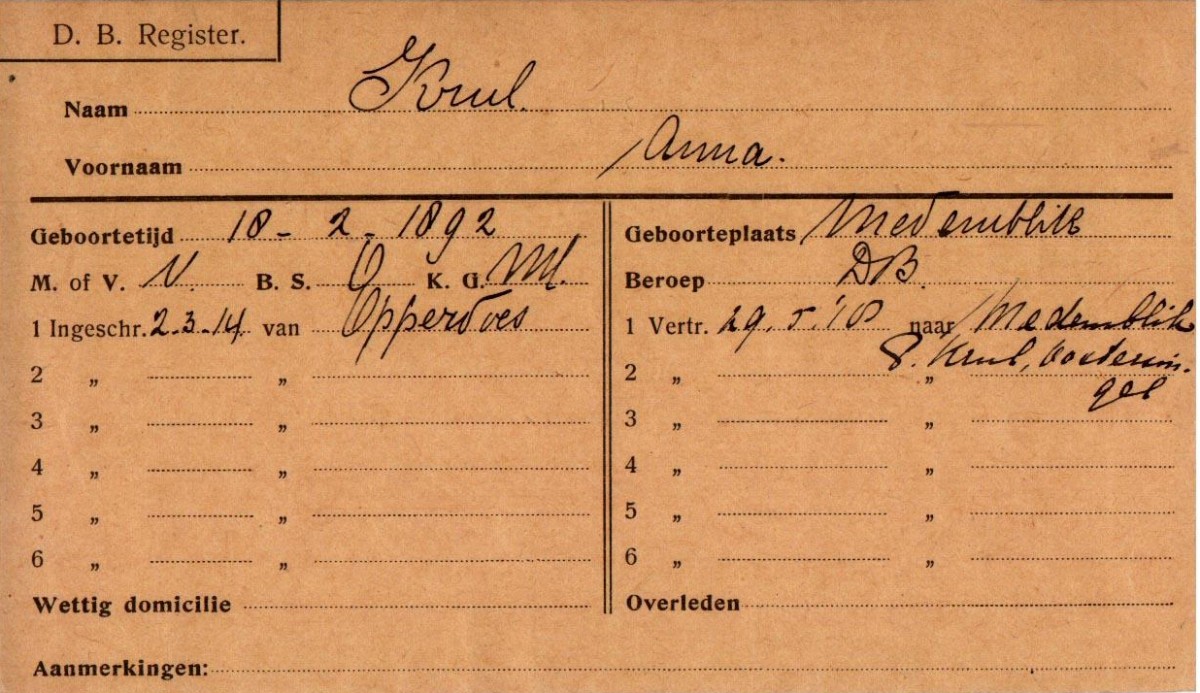 D. B. Register.
Naam Krul.
Voornaam Anna.
Geboortetijd 18 - 2 - 1892
M. of V. V. B. S. O K. G. NH.
1 Ingeschr. 2-3-14 van Opperdoes
2 „ „
3 „ „
4 „ „
5 „ „
6 „ „
Wettig domicilie
Geboorteplaats Medemblik
Beroep DB.
1 Vertr. 29. 5. '18 naar Medemblik
P. Krul, Oostersin-
2 „ „
gel
3 „ „
4 „ „
5 „ „
6 „ „
Overleden
Aanmerkingen: